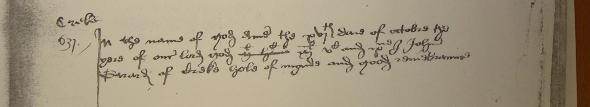 Creke
In the name of god Amen the xviith daie of octobre the
yere of our lord god xvc and I John
of Creke hole of mynde and good remembrance